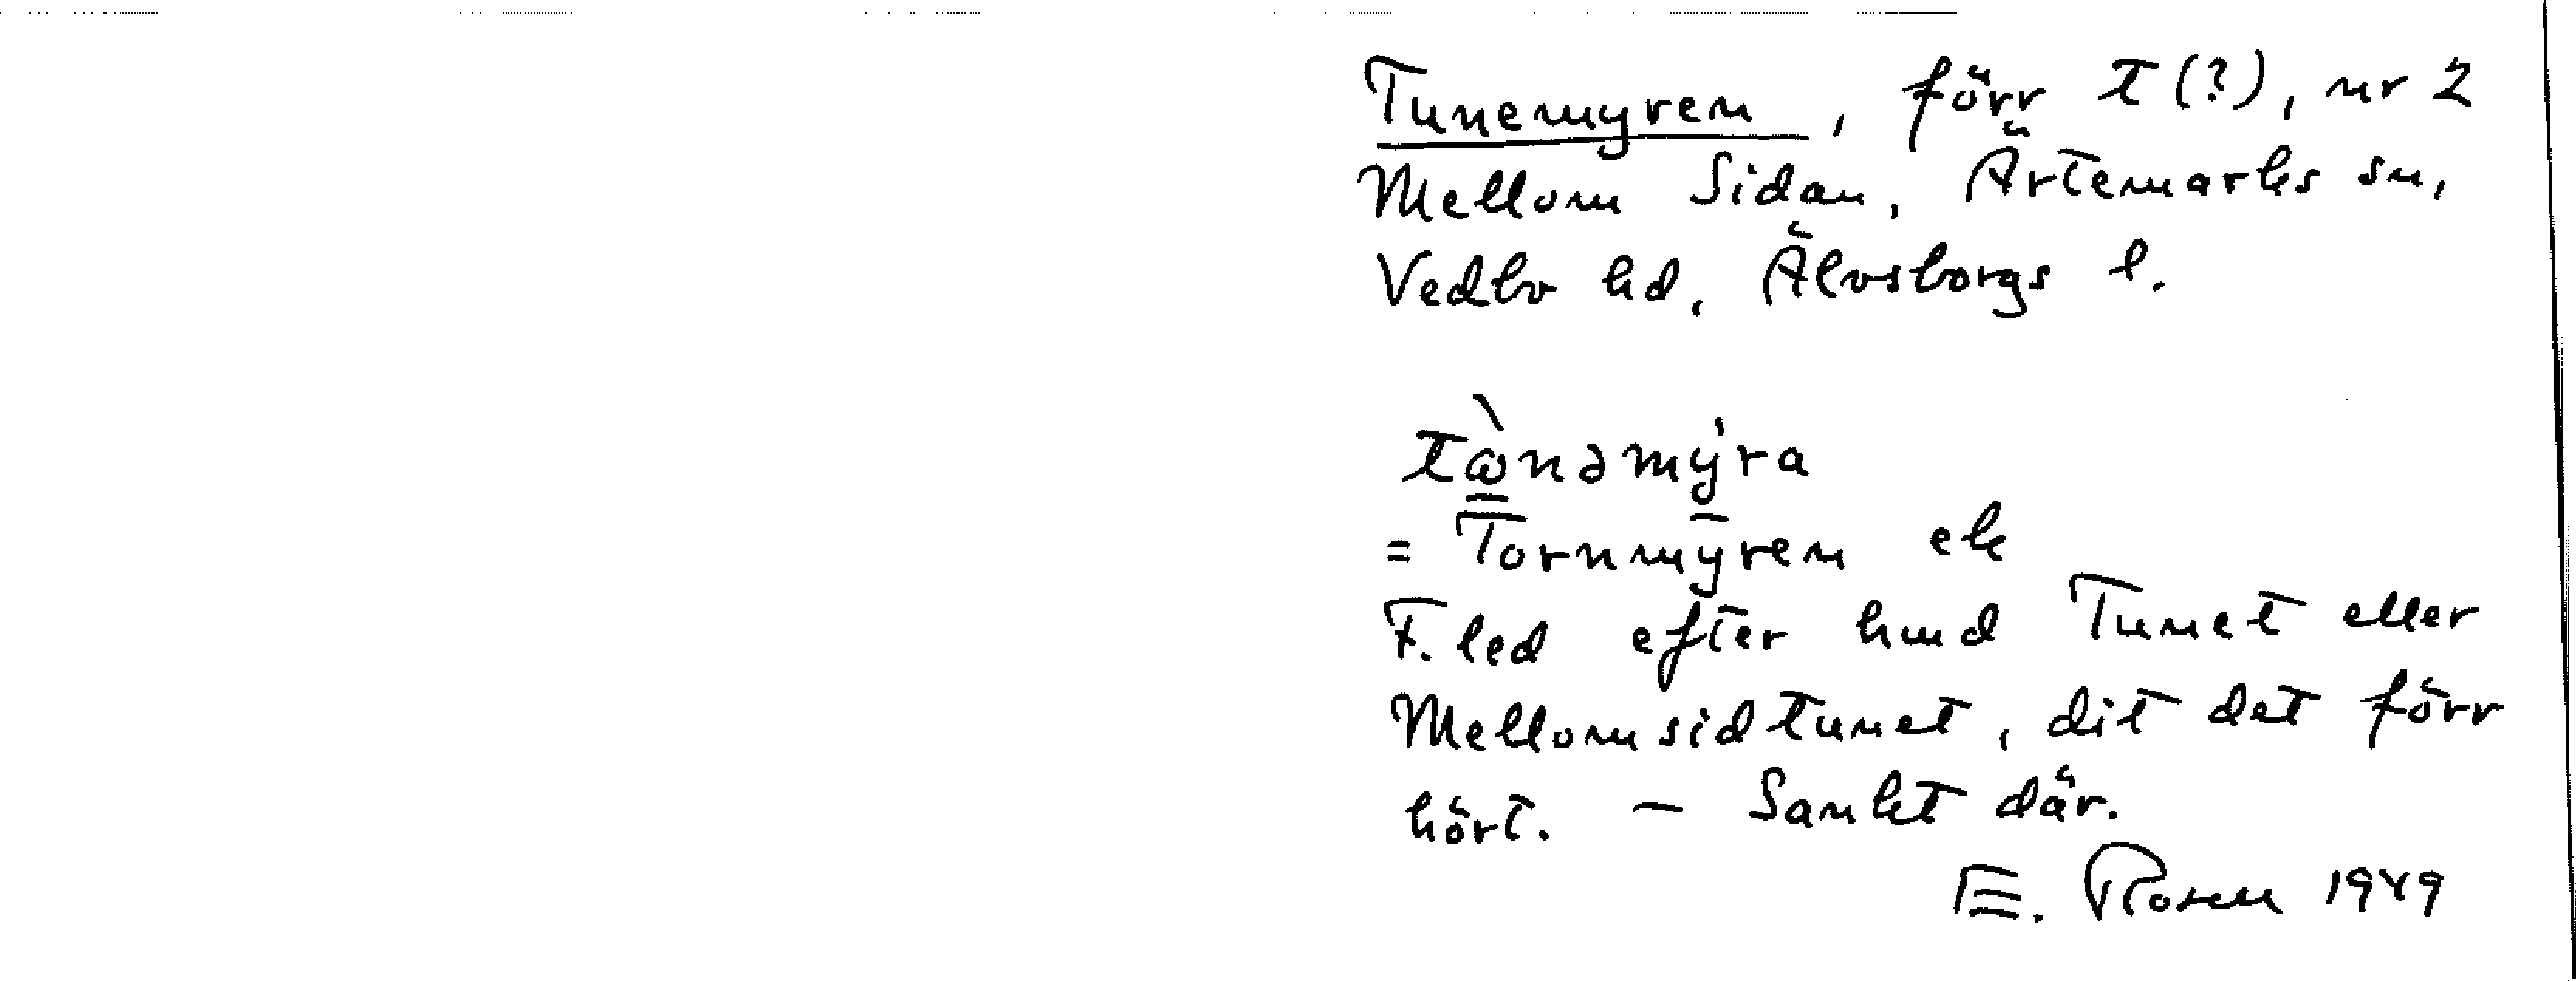 Tunemyren, förr t (?), nr 2
Mellom Sidan, Ärtemarks sn,
Vedbo hd, Älvsborgs l.
tὼnəmy̍ra
= Tornmȳren ek
F. led efter hmd Tunet eller
Mellomsidtunet, dit det förr
hört. — Sankt där.
E. Rosen 1949